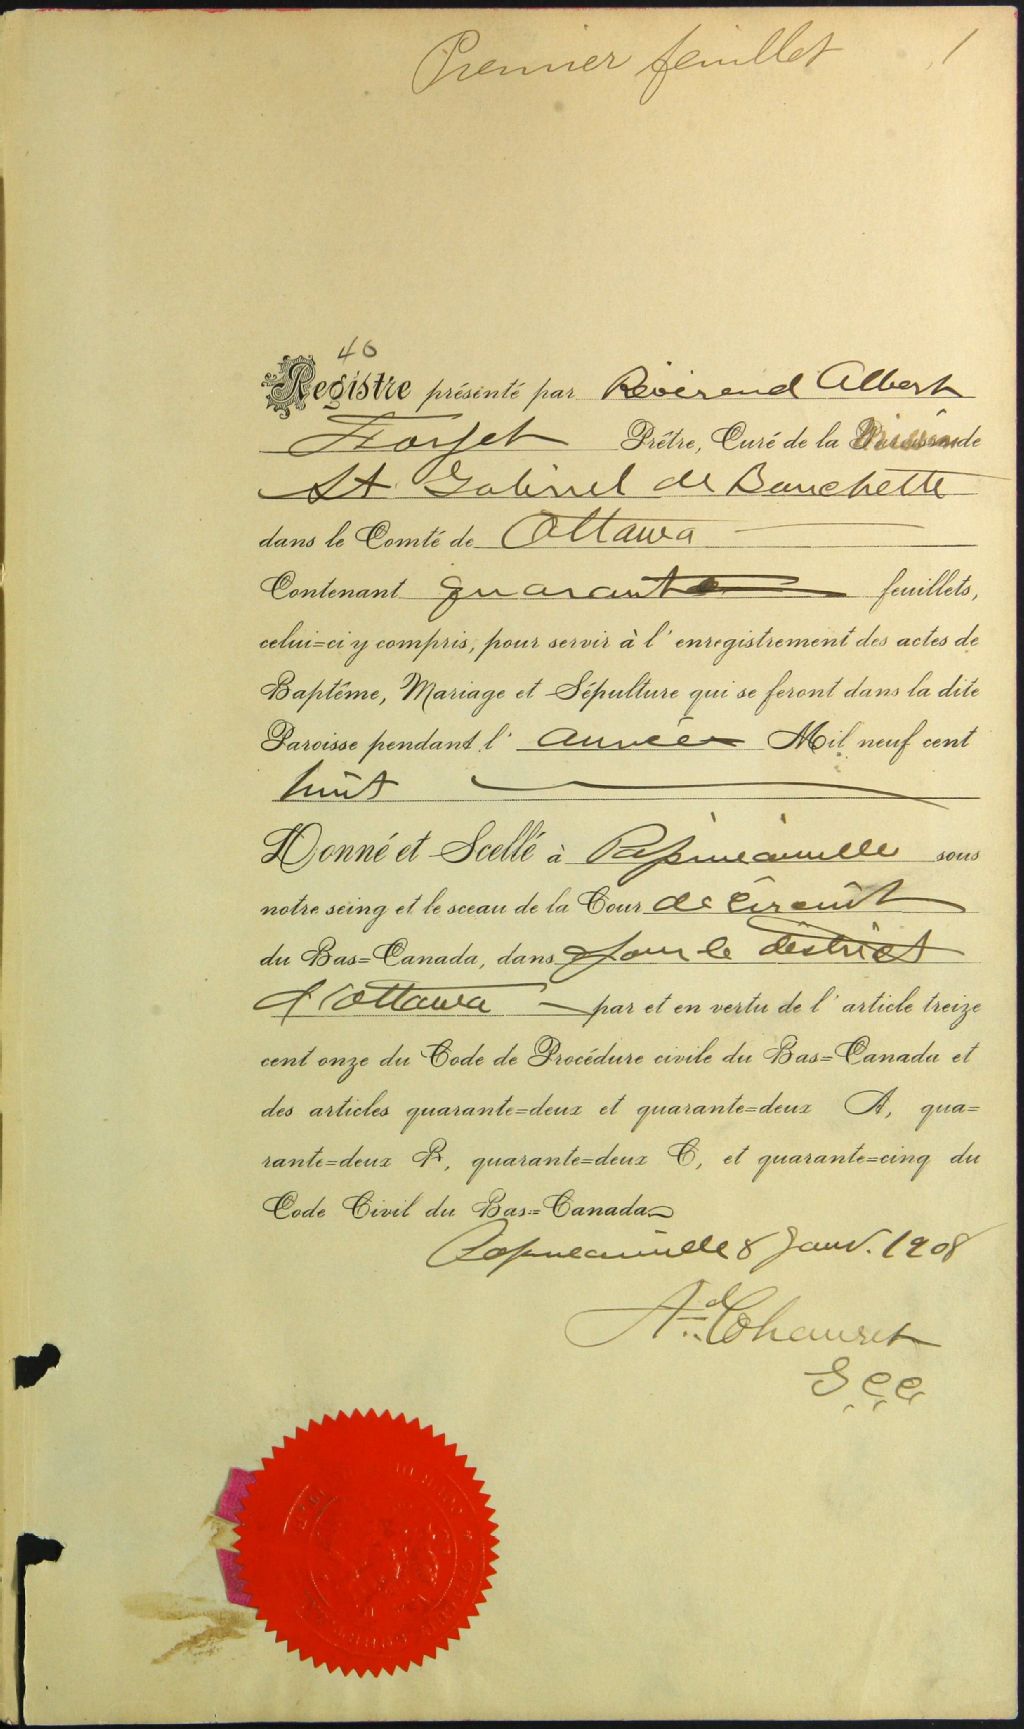 Premier feuillet 1
40
Registre présenté par Révérend Albert
Forget Prêtre, Curé de la Mission de
St Gabriel de Bouchette
dans le Comté de Ottawa
Contenant quarante feuillets,
celui=ci y compris, pour servir à l'enregistrement des actes de
Baptême, Mariage et Sépulture qui se feront dans la dite
Paroisse pendant l'année Mil neuf cent
huit
Donné et Scellé à Papineauville sous
notre seing et le sceau de la Cour de Circuit
du Bas=Canada, dans & pour le district
d'Ottawa par et en vertu de l'article treize
cent onze du Code de Procédure civile du Bas=Canada et
des articles quarante=deux et quarante=deux A, qua=
rante=deux B, quarante=deux C, et quarante=cinq du
Code Civil du Bas=Canada
Papineauville 8 Janv. 1908
Ad. Chausset
G.C.C.